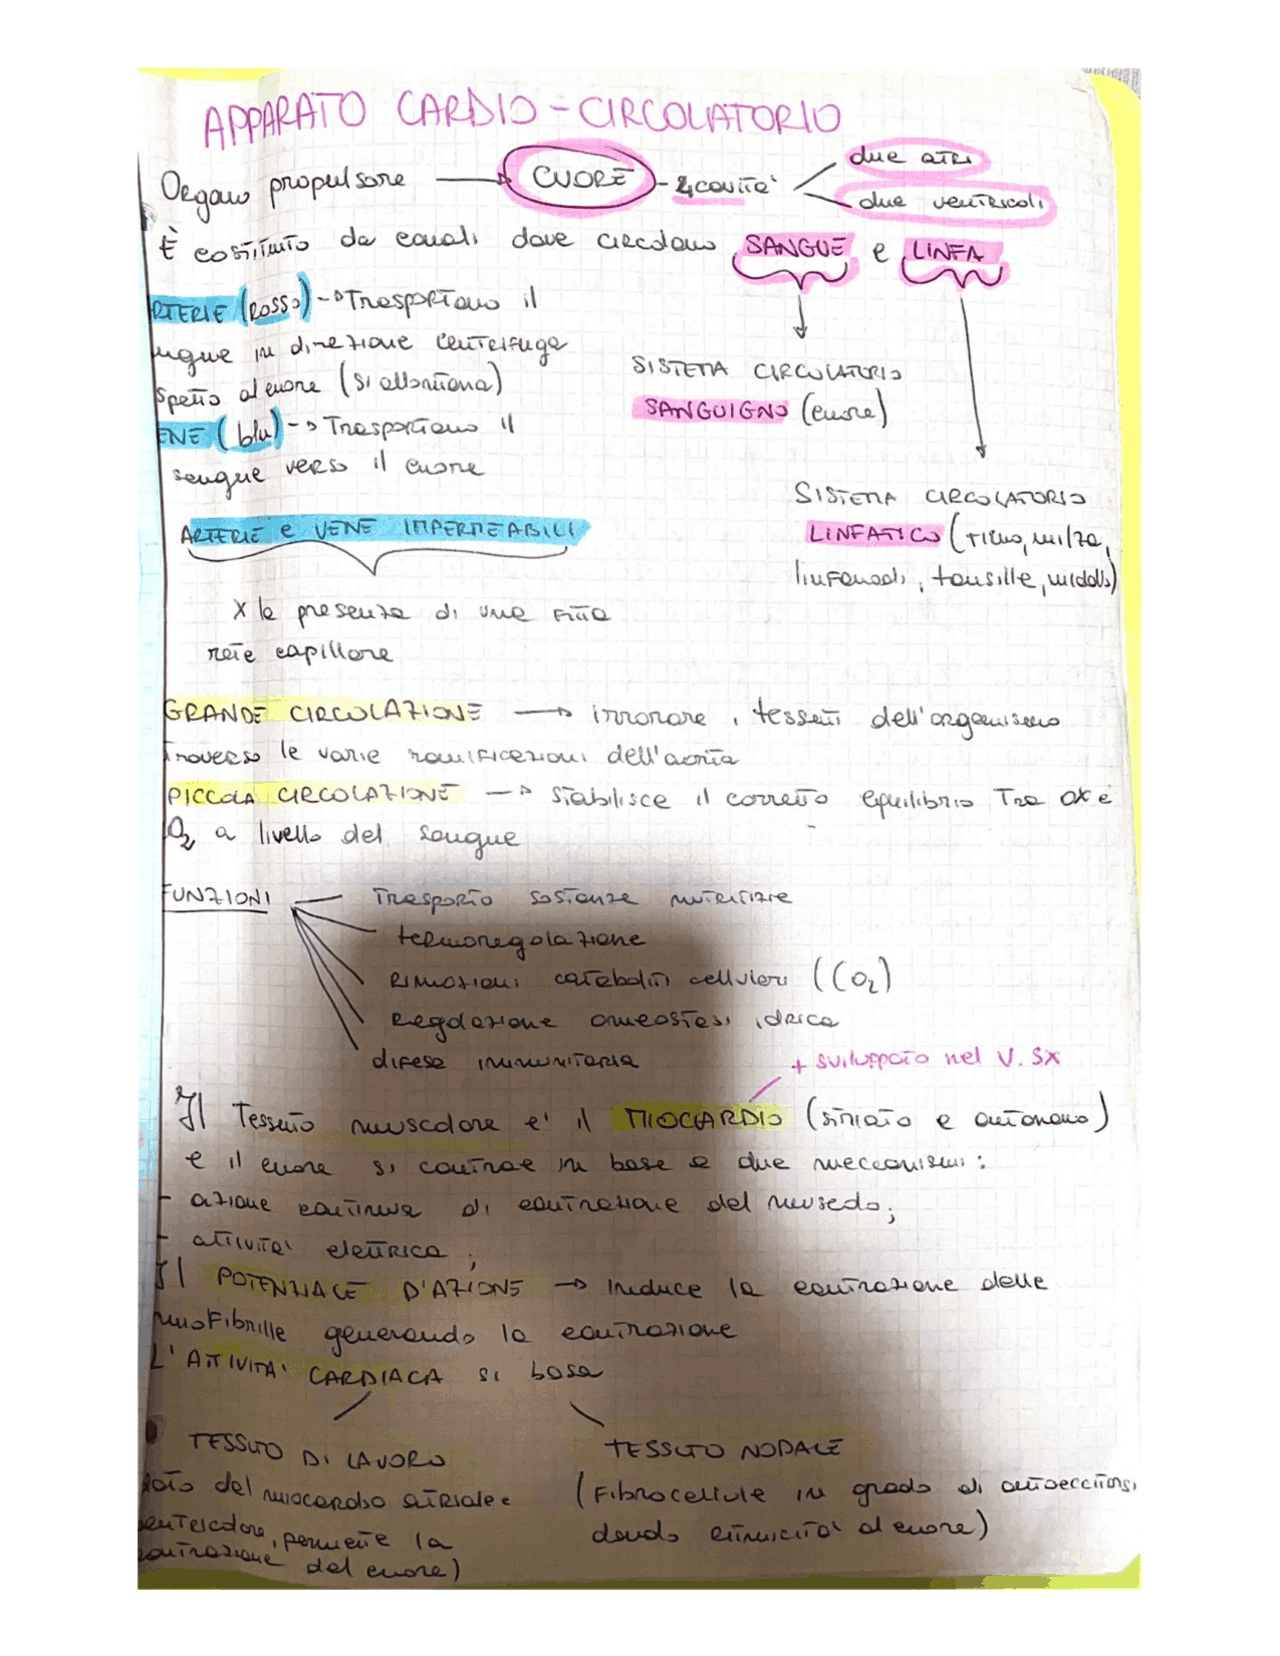 APPARATO CARDIO-CIRCOLATORIO
Organo propulsore → CUORE - 4 cavità
due atri
due ventricoli
È costituito da canali dove circolano SANGUE e LINFA
RTERIE (ROSSO) -> Trasportano il
ngue in direzione centrifuga
spetto al cuore (si allontana)
ENE (blu) -> Trasportano il
sangue verso il cuore
SISTEMA CIRCOLATORIO
SANGUIGNO (cuore)
SISTEMA CIRCOLATORIO
LINFATICO (timo, milza,
linfonodi, tonsille, midollo)
ARTERIE e VENE IMPERMEABILI
x la presenza di una fitta
rete capillare
GRANDE CIRCOLAZIONE → irrorare i tessuti dell'organismo
traverso le varie ramificazioni dell'aorta
PICCOLA CIRCOLAZIONE → stabilisce il corretto equilibrio tra OX e
O2 a livello del sangue
FUNZIONI
Trasporto sostanze nutritizie
termoregolazione
Rimozioni cataboliti cellulari (CO2)
Regolazione omeostasi idrica
difese immunitaria
+ sviluppato nel V. SX
Il Tessuto muscolare e' il MIOCARDIO (striato e autonomo)
e il cuore si contrae in base a due meccanismi:
- azione continua di contrazione del muscolo;
- attività elettrica;
Il POTENZIALE D'AZIONE → induce la contrazione delle
miofibrille generando la contrazione
L'ATTIVITA' CARDIACA si basa
TESSUTO DI LAVORO
dato del miocardio atriale e
ventricolare, permette la
contrazione del cuore)
TESSUTO NODALE
(Fibrocellule in grado di autoeccitarsi,
dando ritmicità al cuore)